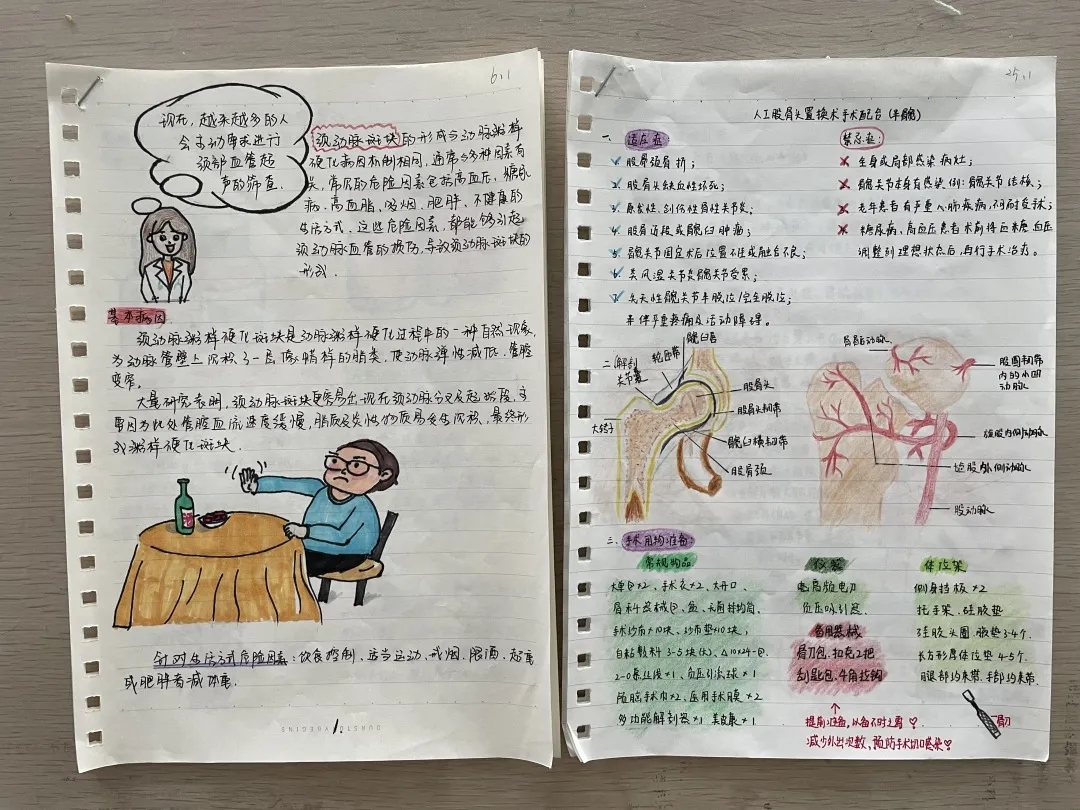 6.1
现在,越来越多的人
会主动要求进行
颈部血管超
声的筛查.
颈动脉斑块的形成与动脉粥样
硬化病因机制相同,通常与多种因素有
关,常见的危险因素包括高血压、糖尿
病、高血脂、吸烟、肥胖、不健康的
生活方式,这些危险因素,都能够引起
颈动脉血管的损伤,导致颈动脉斑块的
形成.
基本病因
颈动脉粥样硬化斑块是动脉粥样硬化过程中的一种自然现象,
为动脉管壁上沉积了一层像蜡样的脂类,使动脉弹性减低、管腔
变窄.
大量研究表明,颈动脉斑块更容易出现在颈动脉分叉及起始段,主
要因为此处管腔血流速度缓慢,脂质及炎性物质易发生沉积,最终形
成粥样硬化斑块.
针对生活方式危险因素:饮食控制、适当运动、戒烟、限酒、超重
或肥胖者减体重.
25.1
人工股骨头置换术手术配合(半髋)
一、适应症:
1. 股骨颈骨折;
2. 股骨头缺血性坏死;
3. 原发性、创伤性骨性关节炎;
4. 股骨近段或髋臼肿瘤;
5. 髋关节固定术后位置不佳或融合不良;
6. 类风湿关节炎髋关节受累;
7. 先天性髋关节半脱位/完全脱位;
来伴严重疼痛及活动障碍。
禁忌症:
全身或局部感染病灶;
髋关节本身有感染,例:髋关节结核;
老年患者有严重心肺疾病,不可耐受球;
糖尿病、高血压患者术前将血糖血压
调整到理想状态后,再行手术治疗。
二、解剖
关节囊
轮匝带
髋臼唇
股骨头
股骨头韧带
大转子
髋臼横韧带
股骨颈
股圆韧带
内的小凹
动脉
旋股内侧动脉
旋股外侧动脉
股动脉
三、手术用物准备:
常规物品
大单包×2、手术衣×2、大开口
骨科器械包、盆、无菌持物筒、
手术纱布×10块、纱布垫×10块;
自粘敷料3-5块(大)、△10×24-包
2-0鱼骨线×1、负压引流球×1
脑脑手术巾×2、医用手术膜×2
多功能解剖器×1 美皮康×1
仪器
电刀脸电刀
负压吸引器
备用器械
骨刀包、扣克2把
刮匙包、牛角拉钩
↑
提前准备,以备不时之需♡
减少外出次数,预防手术切口感染♡
体位架
侧身挡板×2
托手架、硅胶垫
硅胶头圈、腋垫3-4个
长方形厚体位垫4-5个
腿部约束带、手部约束带
骨刀